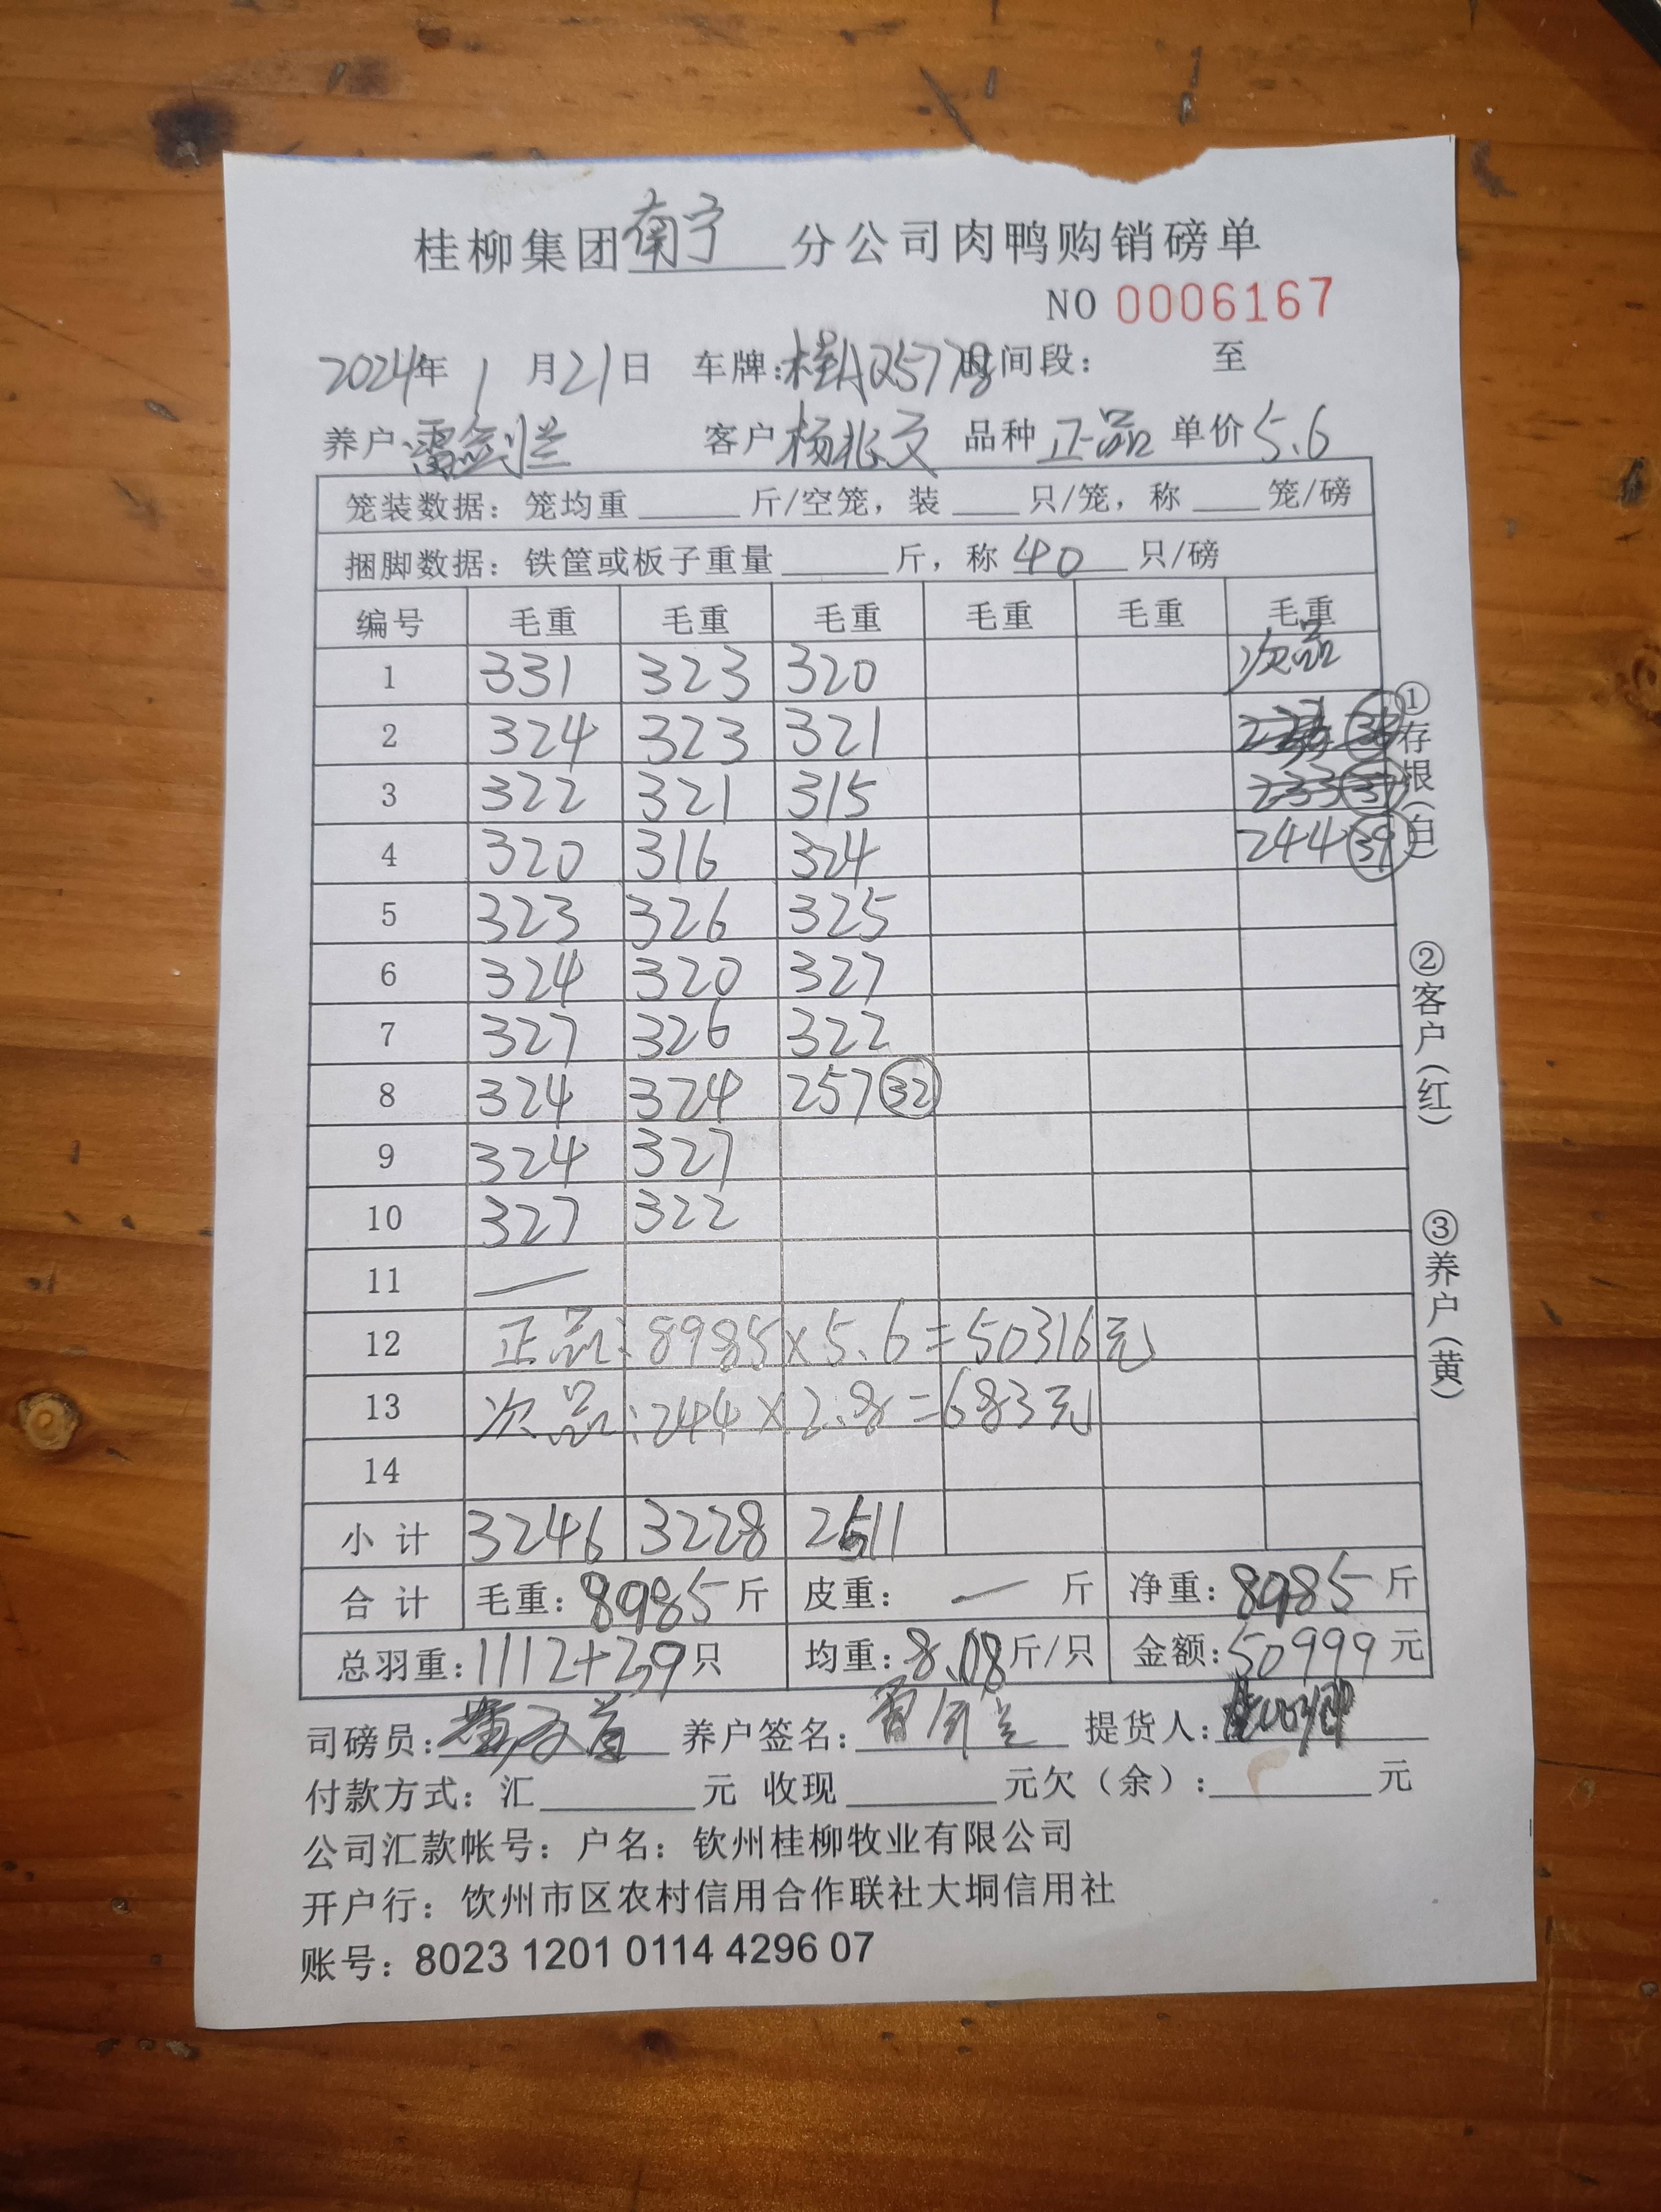 桂柳集团南宁分公司肉鸭购销磅单
NO 0006167
2024年 1 月21日 车牌:桂AQ5778时间段: 至
养户 客户杨兆文 品种 正品 单价5.6
笼装数据：笼均重______斤/空笼，装____只/笼，称____笼/磅
捆脚数据：铁筐或板子重量______斤，称 40 只/磅
编号 毛重 毛重 毛重 毛重 毛重 毛重
1 331 323 320 次品
2 324 323 321
3 322 321 315 233 37
4 320 316 324 244 39
5 323 326 325
6 324 320 327
7 327 326 322
8 324 324 257 32
9 324 327
10 327 322
11 —
12 正品:8985×5.6=50316元
13 次品:244×2.8=683元
14
小计 3246 3228 2511
合计 毛重:8985斤 皮重: — 斤 净重:8985斤
总羽重:1112+39只 均重:8.08斤/只 金额:50999元
司磅员: 养户签名: 提货人:
付款方式：汇______元 收现______元欠（余）:______元
公司汇款帐号：户名：钦州桂柳牧业有限公司
开户行：钦州市区农村信用合作联社大垌信用社
账号：8023 1201 0114 4296 07
①存根(白)
②客户(红)
③养户(黄)